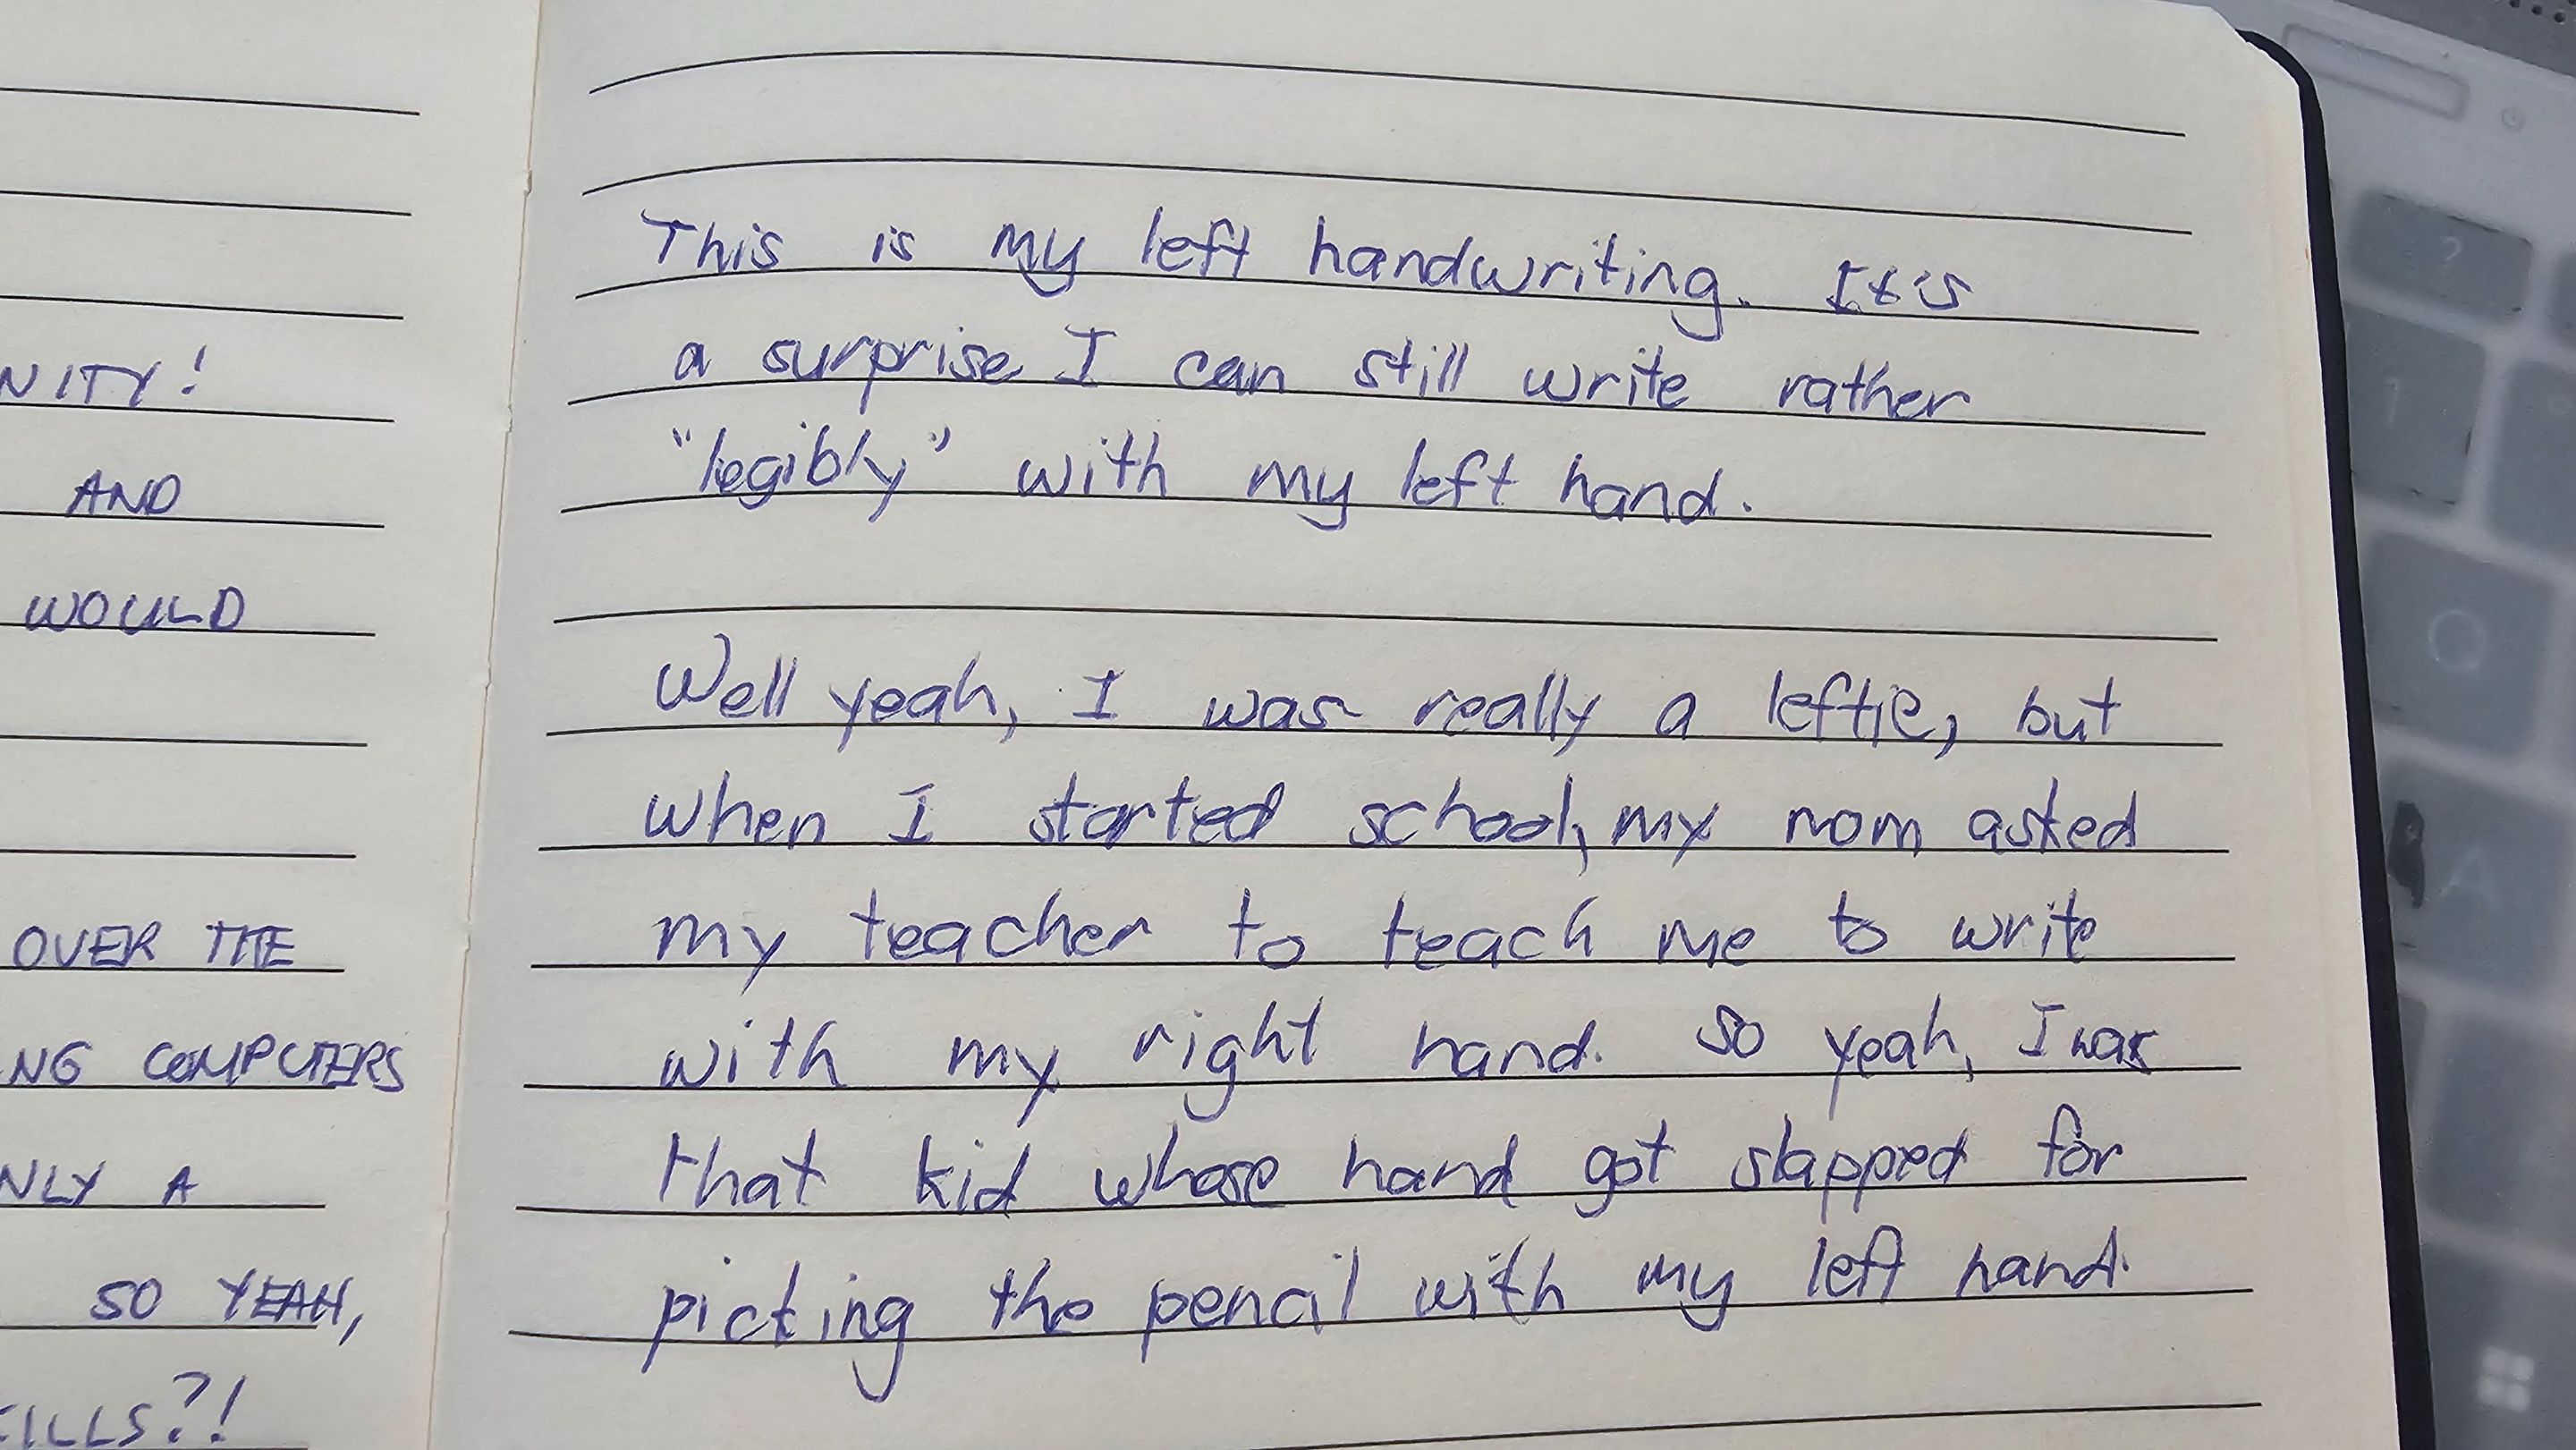 NITY!
AND
WOULD
OVER THE
NG COMPUTERS
NLY A
SO YEAH,
ILLS?!
This is my left handwriting. It's
a surprise I can still write rather
"legibly" with my left hand.
Well yeah, I was really a leftie, but
when I started school, my mom asked
my teacher to teach me to write
with my right hand. So yeah, I was
that kid whose hand got slapped for
picking the pencil with my left hand.
?
1
Q
A